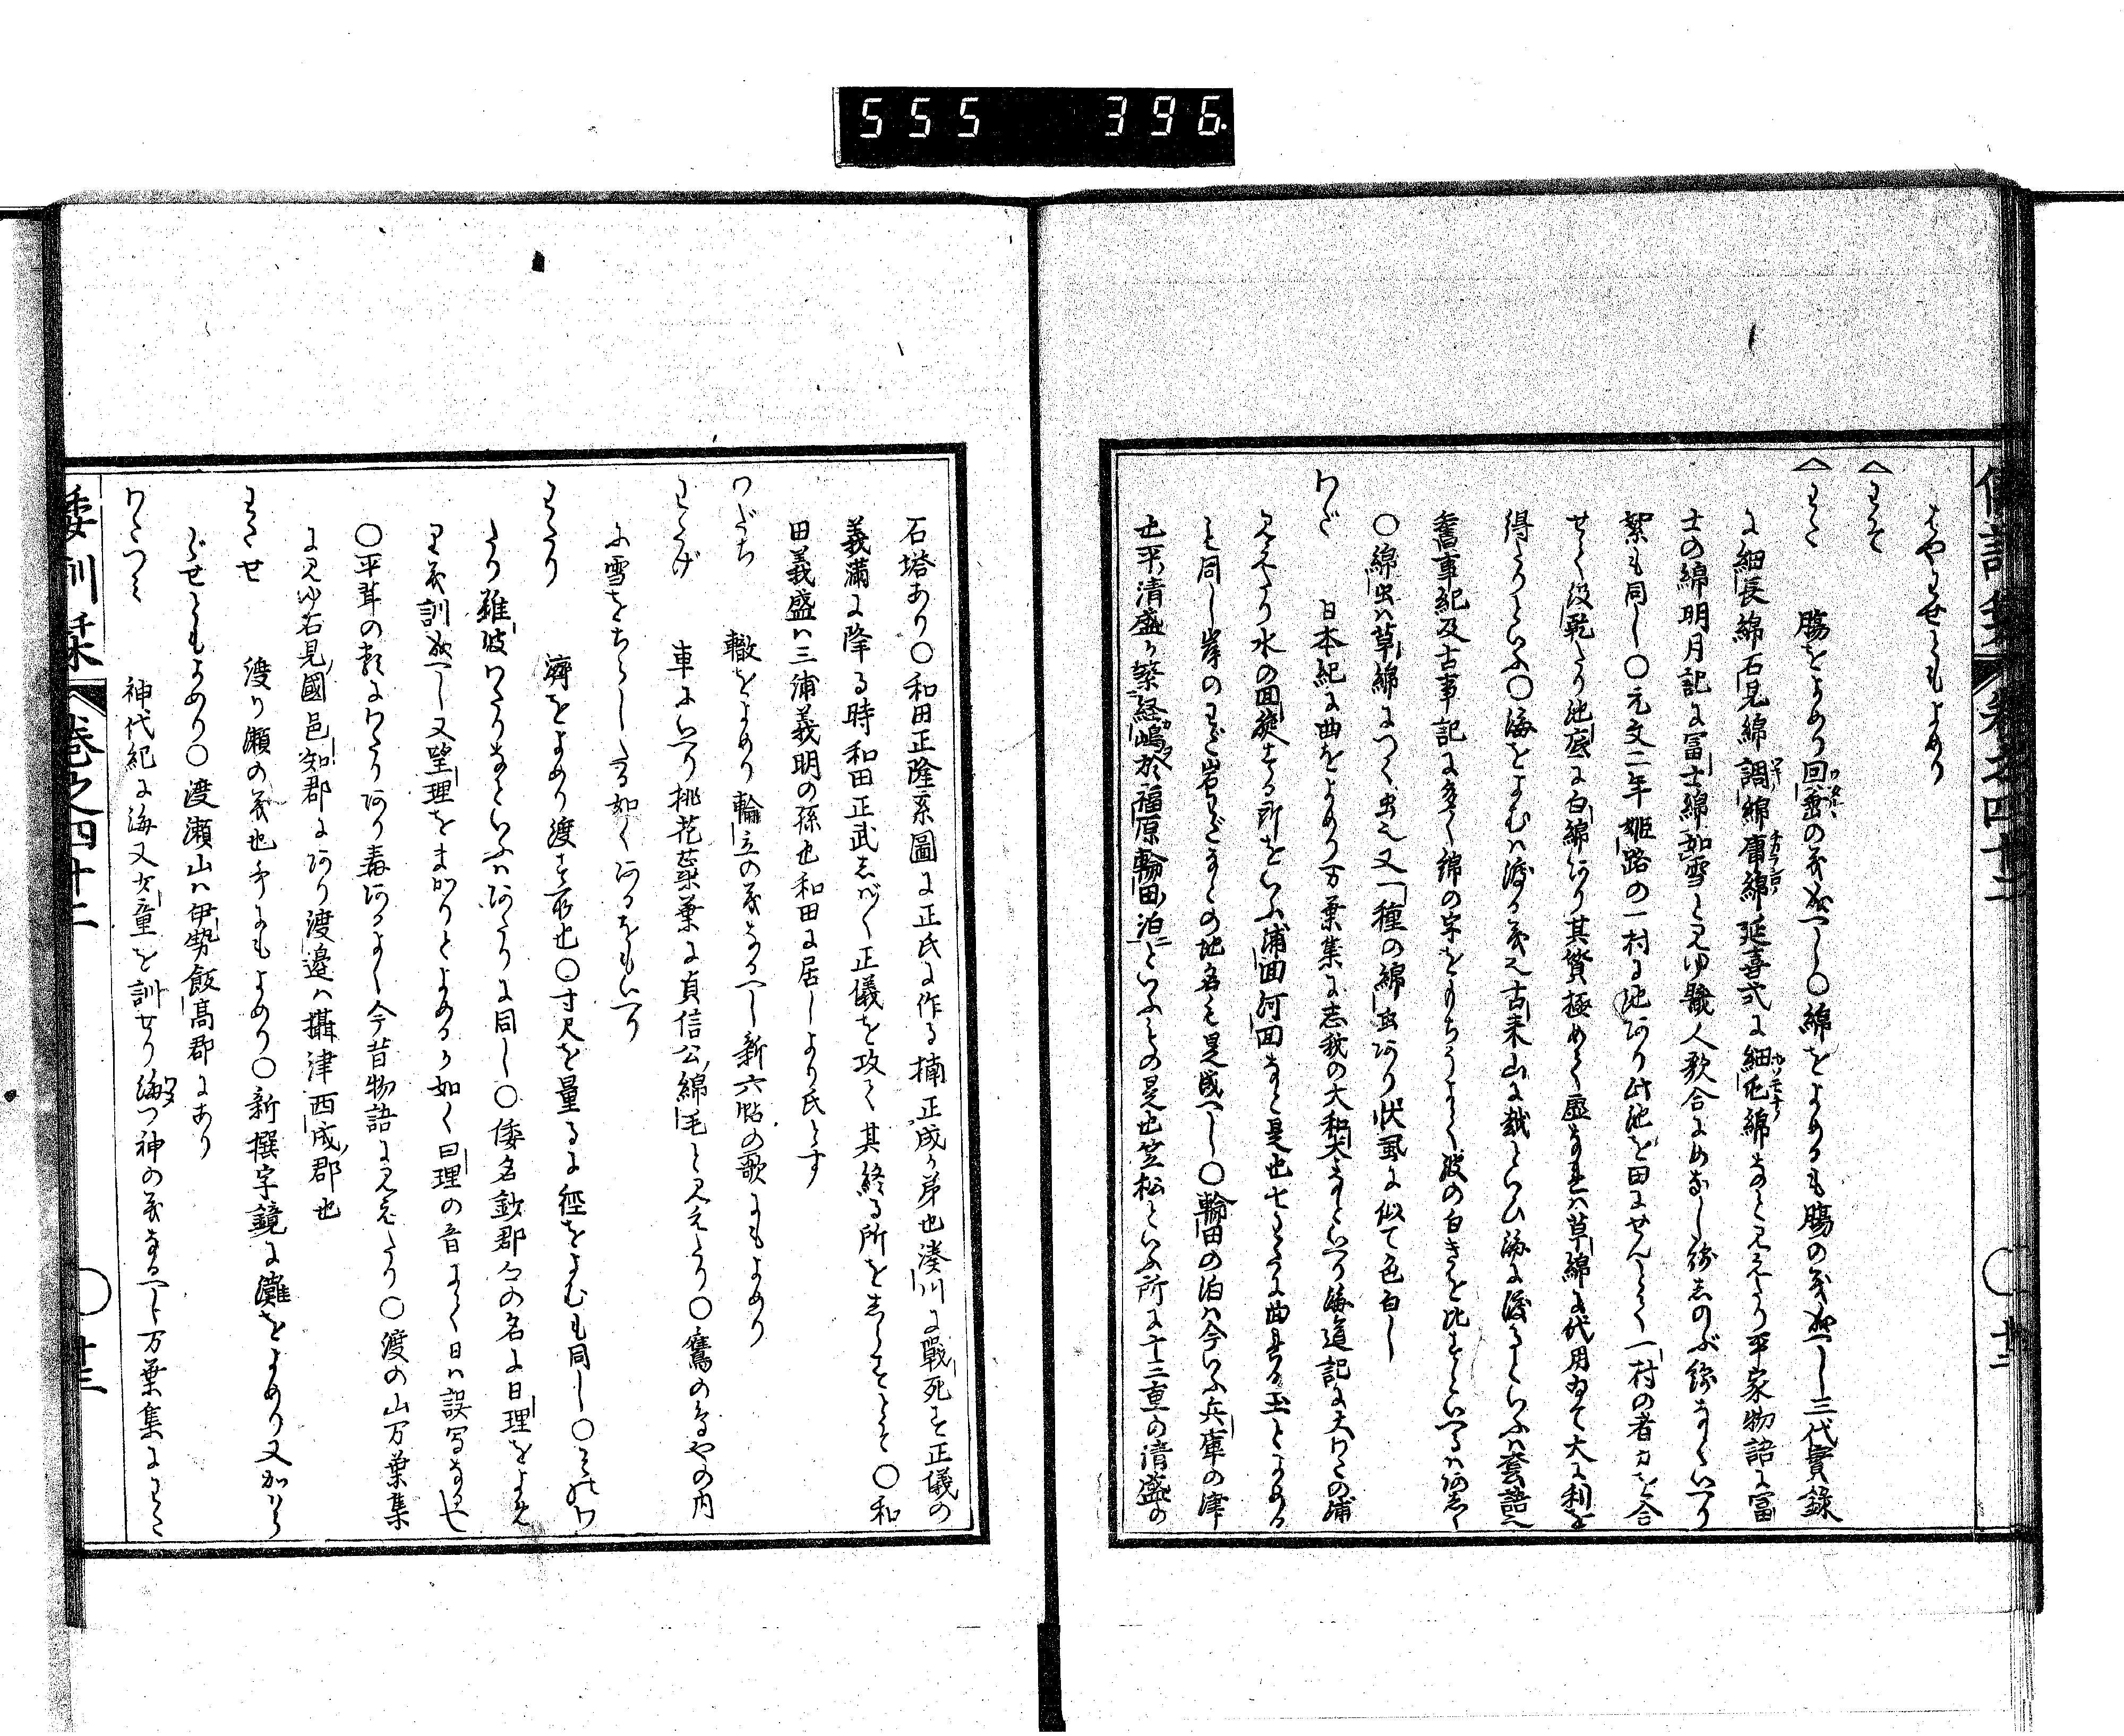 555 396
はやわせともよめり
わそ
わた 腸をよめり回虫の義成へし○綿をよめるも腸の義成へし三代實録
に細長綿石見綿調綿庸綿延喜式に細屯綿なと見えたり平家物語に冨
士の綿明月記に冨士綿如雪と見ゆ職人歌合にめなし緒志のぶ綿なといへり
絮も同し○元文二年姫路の一村に池あり此池を田にせんとて一村の者力を合
せて段乾たり池底に白綿あり其贇極めて虚なれハ草綿に代用ゐて大に利を
得たりといふ○海をよむハ渡る義也古来山に越といひ海に渡るといふハ套語也
舊事紀及古事記に多く綿の字をもちうよく波の白きを比すといへるハあし
○綿虫ハ草綿につく虫也又一種の綿虫あり状虱に似て色白し
わだ 日本紀に曲をよめり万葉集に志我の大和太なといへり海道記に大わたの浦
見えたり水の回旋する所をいふ浦回河回なと是也七わたに曲れる玉とよめる
も同し岸のわだ岩わだなとの地名も是成へし○輪田の泊ハ今いふ兵庫の津
也平清盛か築経嶋於福原輪田泊といふもの是也笠松といふ所に十三重の清盛の
石塔あり○和田正隆系圖に正氏に作る楠正成か弟也湊川に戰死す正儀の
義満に降る時和田正武志ばく正儀を攻て其終る所をしらすとそ○和
田義盛ハ三浦義明の孫也和田に居しより氏とす
わだち 轍をよめり輪立の義なるへし新六帖の歌にもよめり
わたげ 車にいへり桃花蘂葉に貞信公綿毛と見えたり○鷹のとやの内
に雪をちらしたる如くあるをもいへり
わたり 濟をよめり渡す所也○寸尺を量るに徑をよむも同し○そのわ
たり雖彼わたりなといふハあたりに同し○倭名鈔郡名の名に日理をよめ
り義訓成へし又望理をまがりとよめるか如く曰理の音にて日ハ誤写なるへし
○平茸の類にわたりあり毒あるよし今昔物語に見えたり○渡の山万葉集
に見ゆ石見國邑知郡にあり渡邊ハ攝津西成郡也
わたせ 渡り瀬の義也歌にもよめり○新撰字鏡に灘をよめり又かハら
ぐせともよめり○渡瀬山ハ伊勢飯高郡にあり
わたつみ 神代紀に海又少童を訓せり海つ神の義なるへし万葉集にわた
倭訓栞 巻之四十二 ○ 廿三